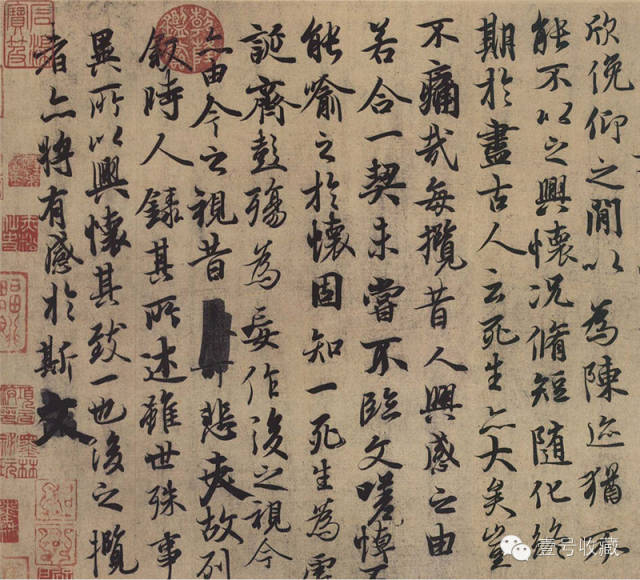 欣俛仰之閒以為陳迹猶不
能不以之興懷况脩短隨化終
期於盡古人云死生亦大矣豈
不痛哉每攬昔人興感之由
若合一契未嘗不臨文嗟悼不
能喻之於懷固知一死生為虛
誕齊彭殤為妄作後之視今
亦由今之視昔悲夫故列
叙時人錄其所述雖世殊事
異所以興懷其致一也後之攬
者亦將有感於斯文
石渠寶笈
壹号收藏